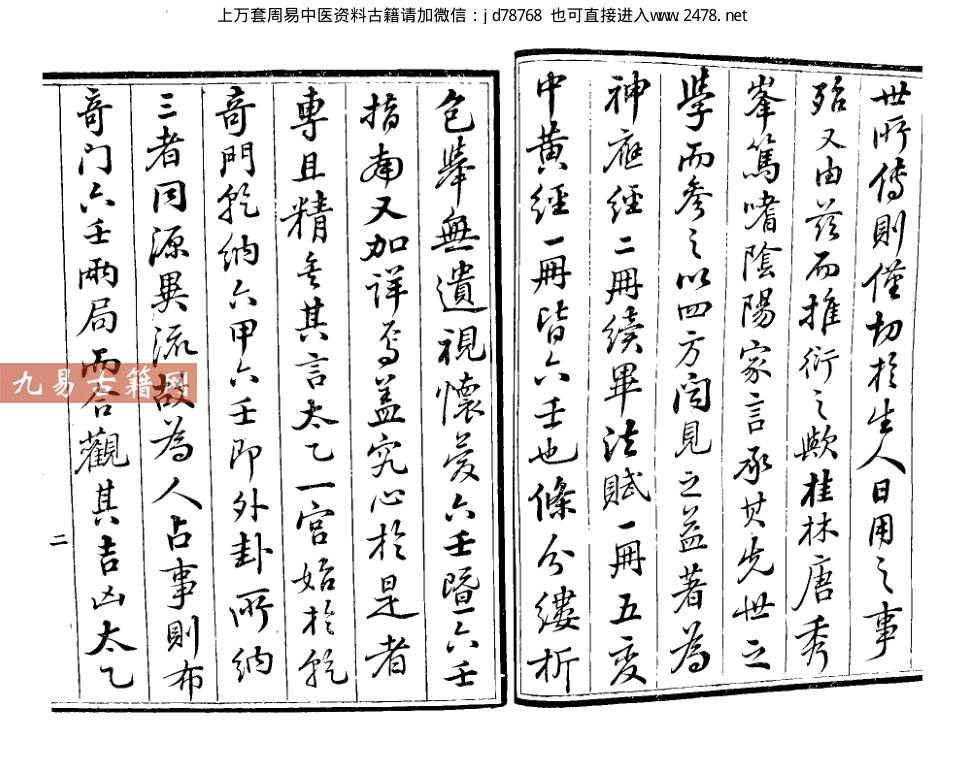 上万套周易中医资料古籍请加微信：jd78768 也可直接进入www.2478.net
世所傳則僅切於生人日用之事
殆又由茲而推衍之歟桂林唐秀
峯篤嗜陰陽家言承其先世之
學而參之以四方聞見之益著為
神應經二冊續畢法賦一冊五变
中黃經一冊皆六壬也條分縷析
包舉無遺視懷荌六壬暨六壬
指南又加詳焉蓋究心於是者
專且精矣其言太乙一宮始於乾
奇門乾納六甲六壬即外卦所納
三者同源異流故為人占事則布
奇门六壬兩局而合觀其吉凶太乙
二
九易古籍网